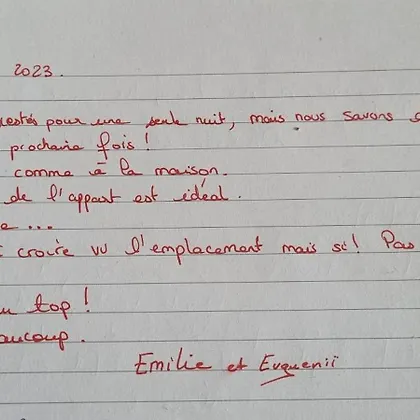 2023.
restés pour une seule nuit, mais nous savons
prochaine fois !
comme à la maison.
de l'appart est idéal.
e ...
croire vu l'emplacement mais si! Pas
u top !
aucoup.
Emilie et Evguenii